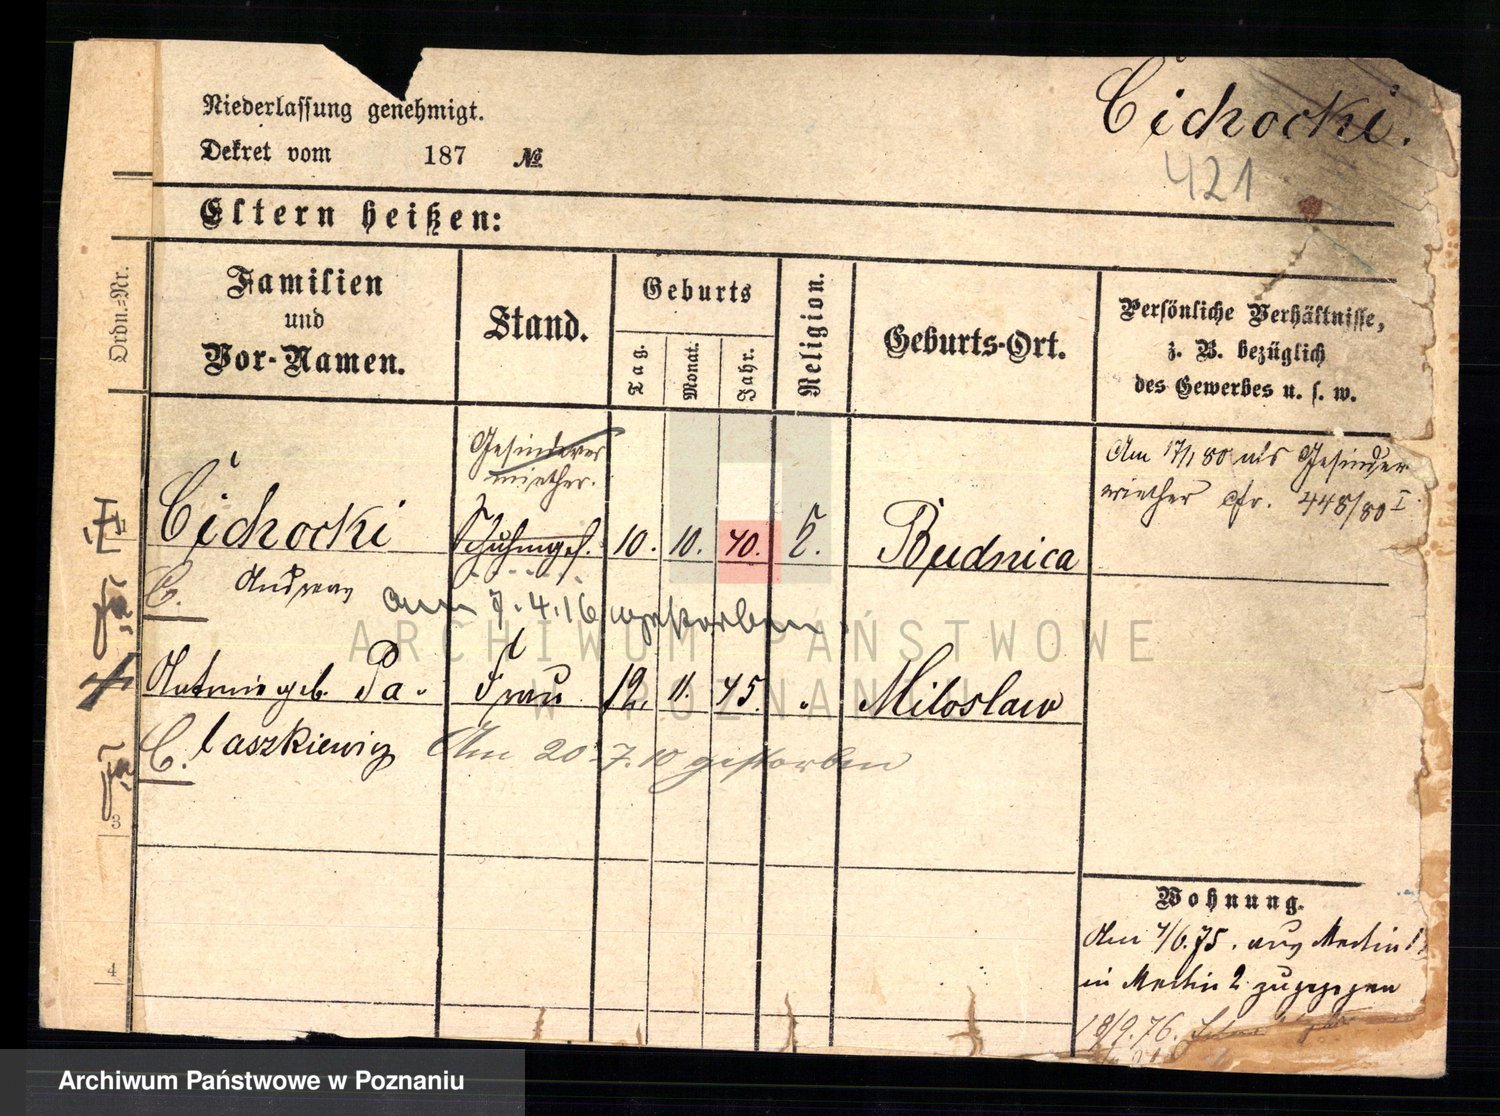 Niederlassung genehmigt.
Dekret vom 187 №
Cichocki.
421
Eltern heißen:
Ordn.-Nr.
Familien
und
Vor-Namen.
Stand.
Geburts
Tag.
Monat.
Jahr.
Religion.
Geburts-Ort.
Persönliche Verhältnisse,
z. B. bezüglich
des Gewerbes u. s. w.
Gesindever
miether.
Am 17/1 80 als Gesinder
miether cfr. 448/80 I.
Cichocki
10. 10. 40.
Budnica
C. Andreas
am 7.4.16 gestorben.
Antonie geb. Pa-
Frau 12. 11. 45.
Miloslaw
C. laszkiewicz
Am 20.7.10 gestorben
3
4
Wohnung.
Am 4/6.75. aus Martin
in Martin 2 zugezogen
18/9.76.
ARCHIWUM PAŃSTWOWE
W POZNANIU
Archiwum Państwowe w Poznaniu